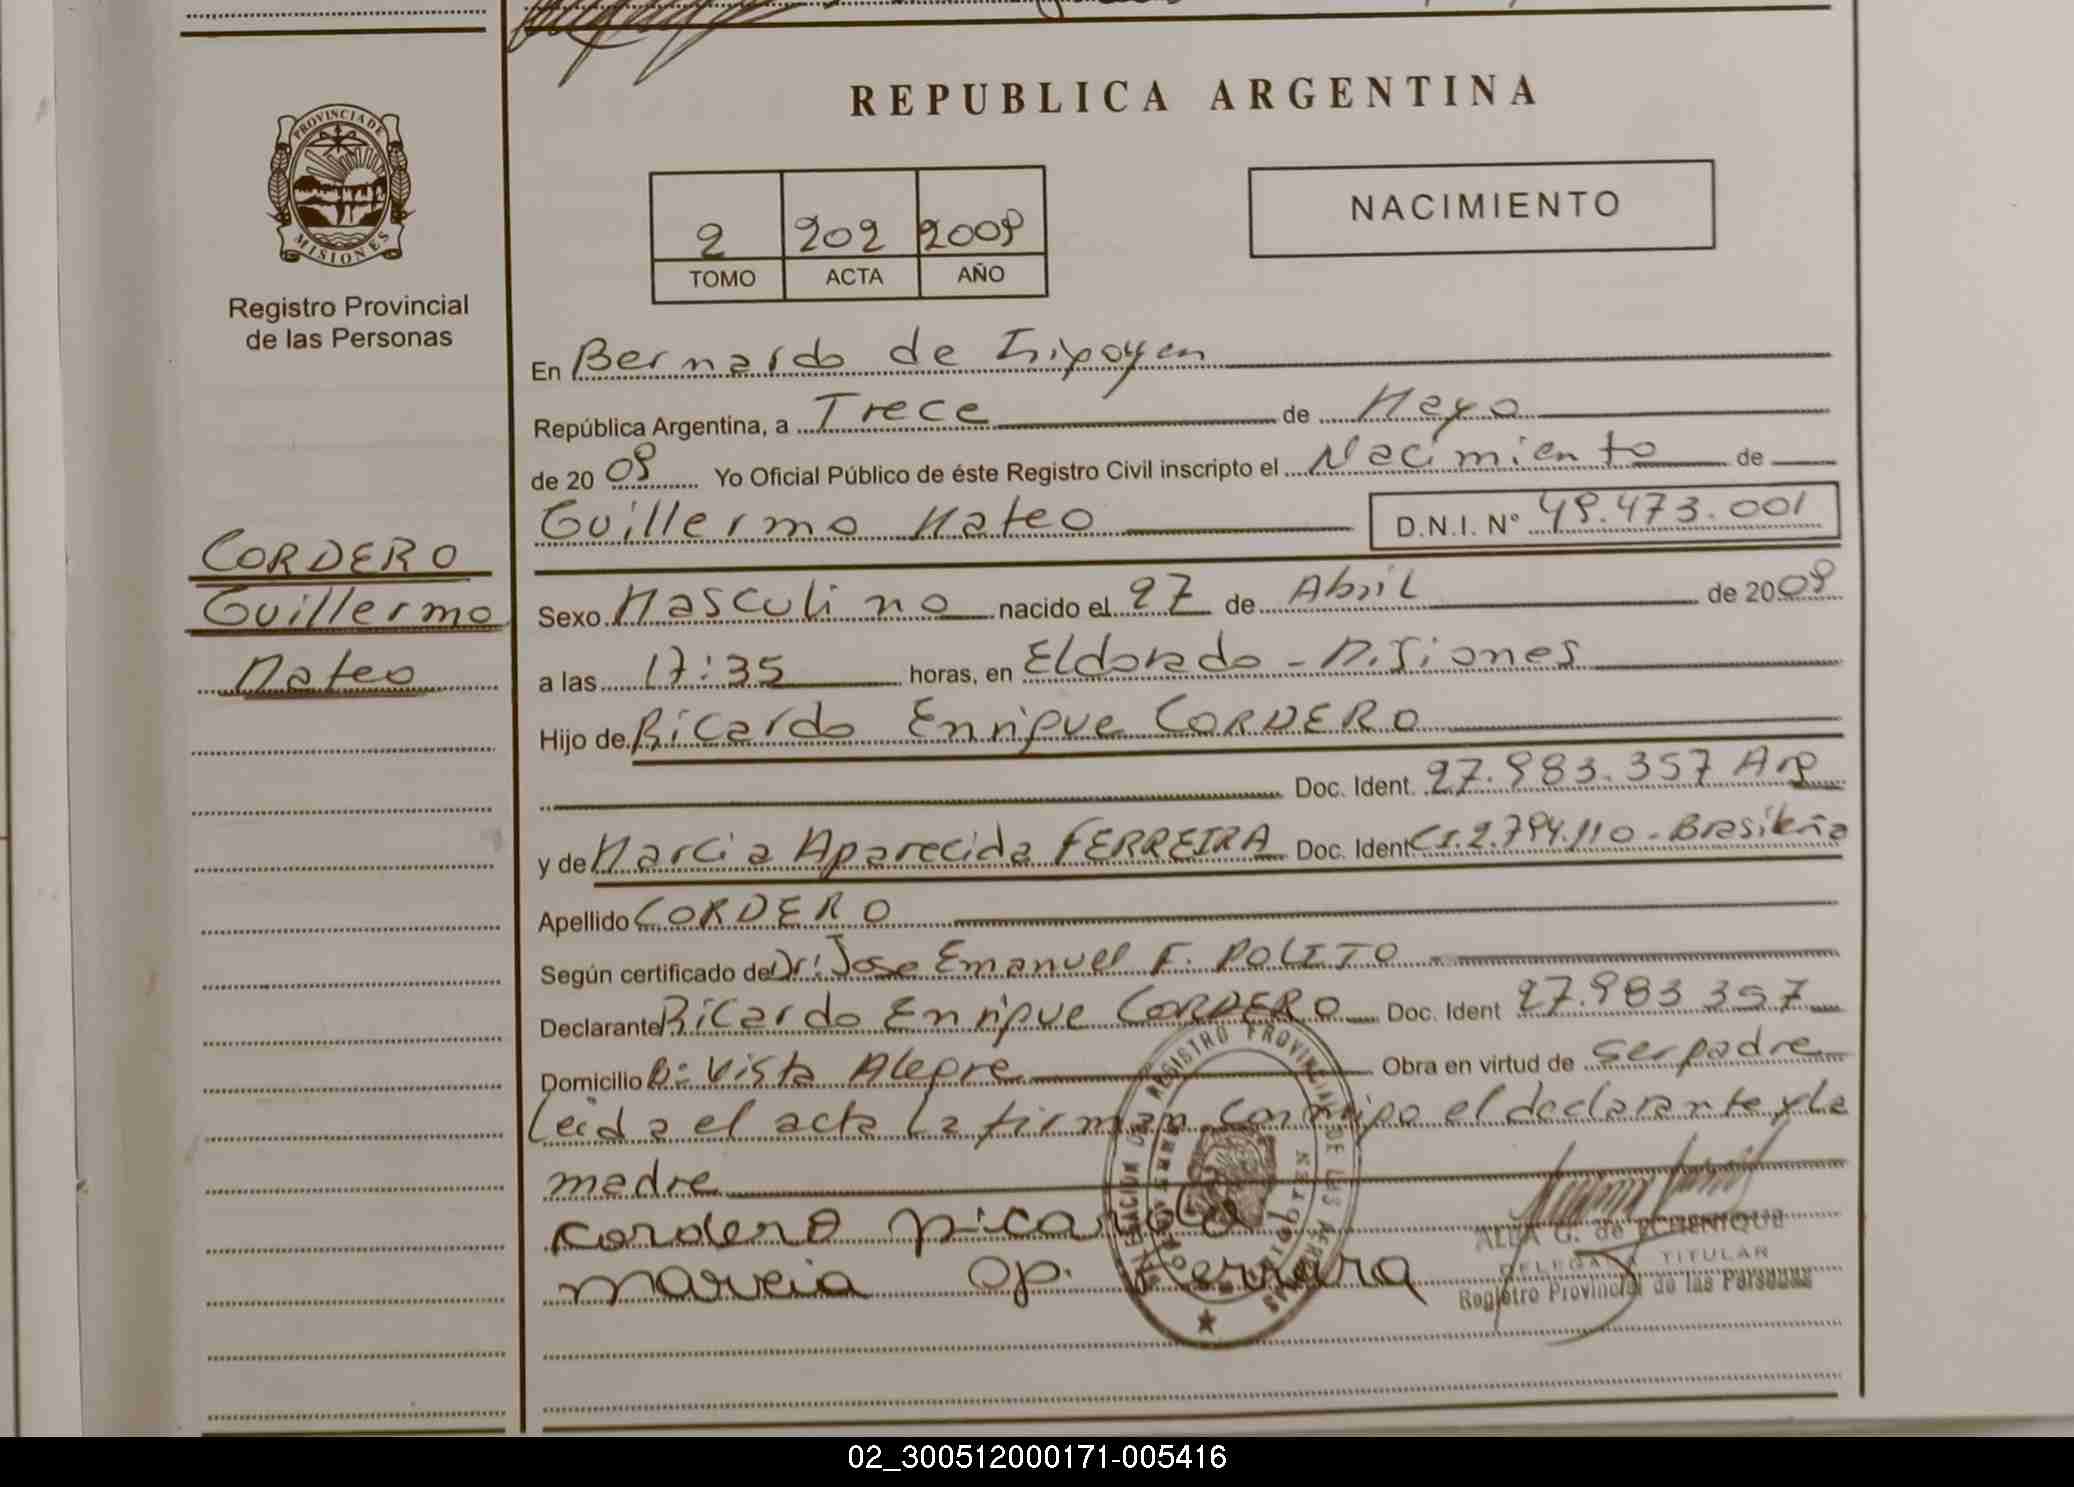 REPUBLICA ARGENTINA
PROVINCIA DE MISIONES
Registro Provincial
de las Personas
2 202 2009
TOMO ACTA AÑO
NACIMIENTO
En Bernardo de Irigoyen
República Argentina, a Trece de Mayo
de 20 09 Yo Oficial Público de éste Registro Civil inscripto el Nacimiento de
Guillermo Mateo D.N.I. N° 49.473.001
CORDERO
Guillermo
Mateo
Sexo Masculino nacido el 27 de Abril de 2009
a las 17:35 horas, en Eldorado - Misiones
Hijo de Ricardo Enrique CORDERO
Doc. Ident. 27.983.357 Arg
y de Marcia Aparecida FERREIRA Doc. Ident CI.2.794.110 - Brasileña
Apellido CORDERO
Según certificado de Dr: Jose Emanuel F. POLITO
Declarante Ricardo Enrique CORDERO Doc. Ident 27.983 357
Domicilio B: Vista Alegre Obra en virtud de ser padre
Leida el acta la firman conmigo el declarante y la
madre
cordero ricardo
ALBA G. de ECHENIQUE
DELEGADA TITULAR
Registro Provincial de las Personas
02_300512000171-005416